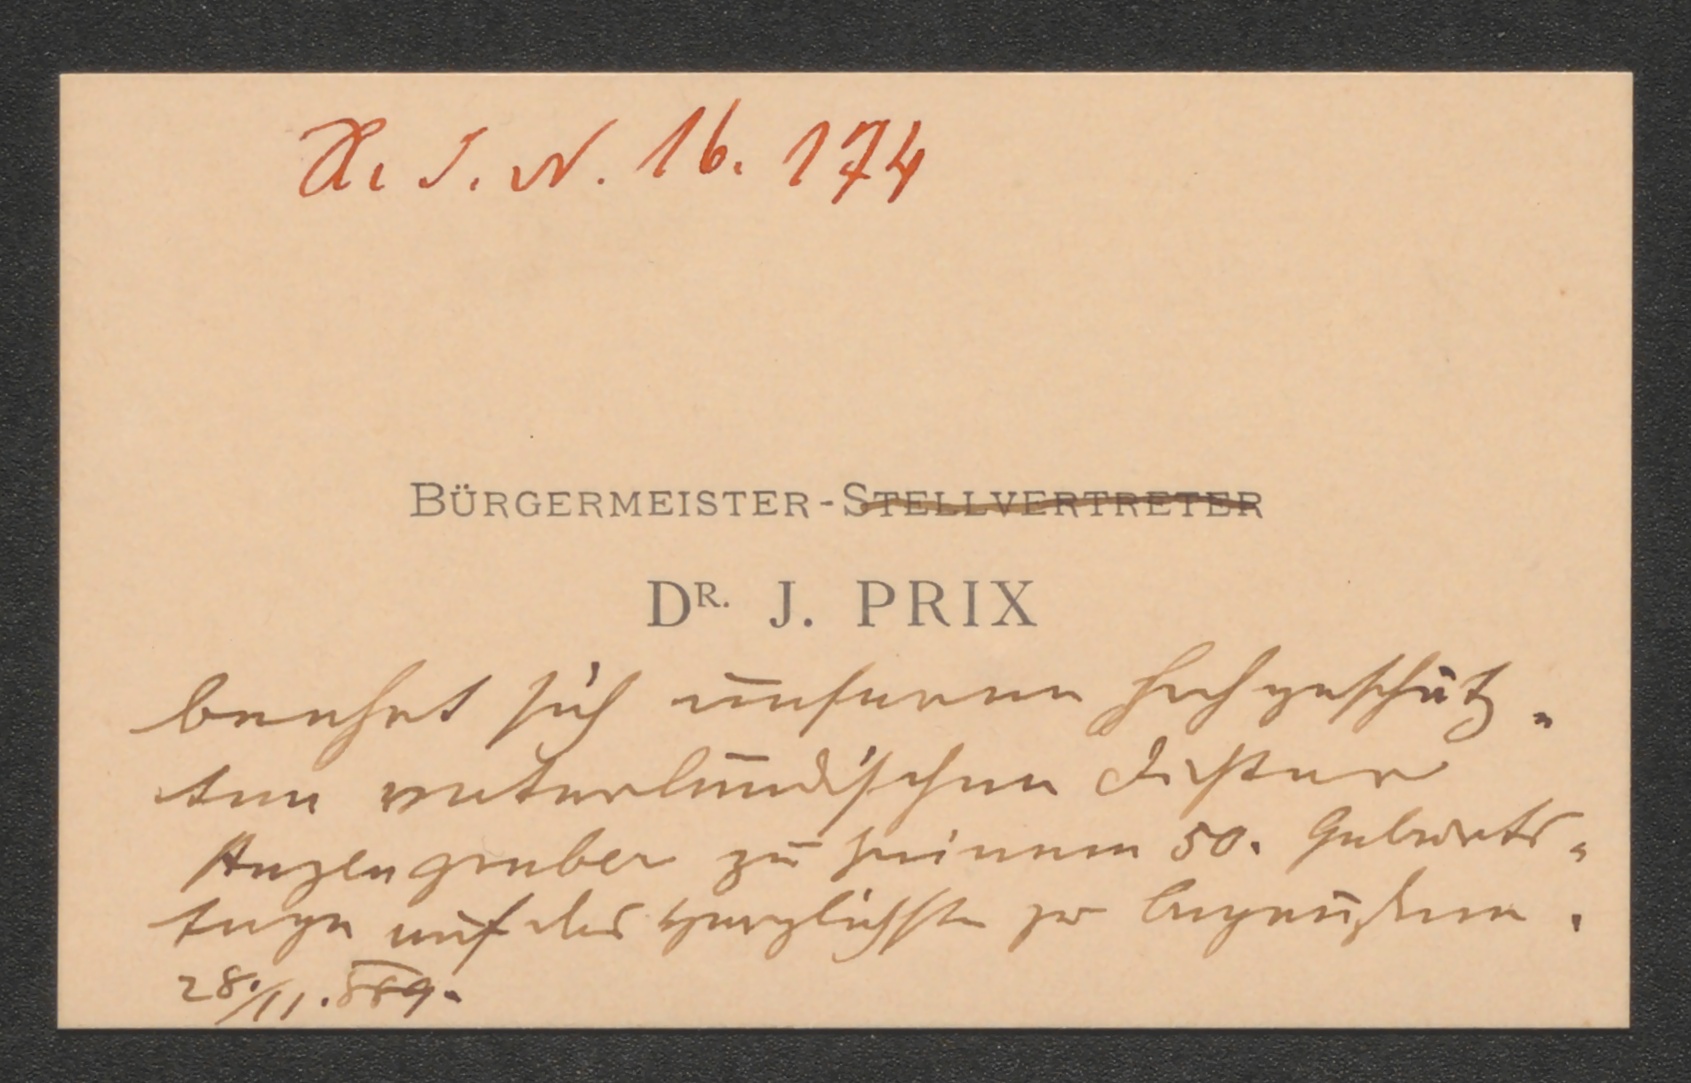 H. I. N. 16. 174
BÜRGERMEISTER-STELLVERTRETER
DR. J. PRIX
beehrt sich unseren hochgeschätz-
ten vaterländischen Dichter
Anzengruber zu seinem 50. Geburts-
tage auf das Herzlichste zu begrüßen.
28./11. 889.